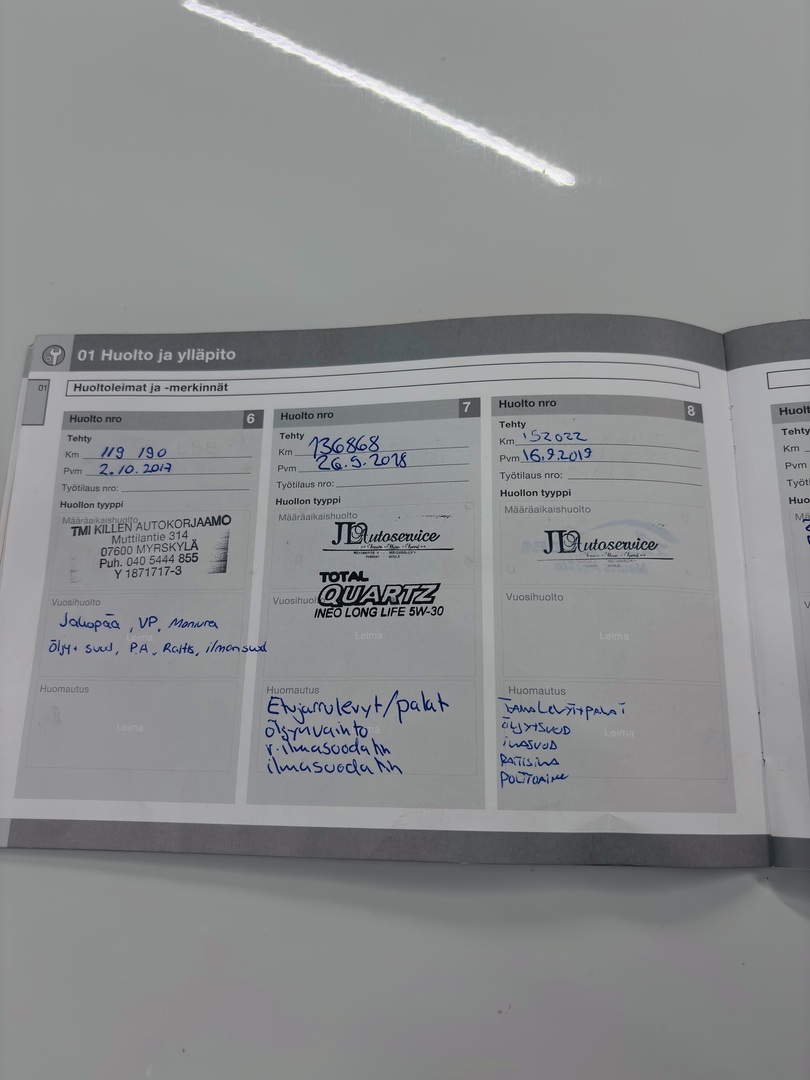 01 Huolto ja ylläpito
01
Huoltoleimat ja -merkinnät
Huolto nro 6
Tehty
Km 119 190
Pvm 2.10.2017
Työtilaus nro:
Huollon tyyppi
Määräaikaishuolto
TMI KILLEN AUTOKORJAAMO
Muttilantie 314
07600 MYRSKYLÄ
Puh. 040 5444 855
Y 1871717-3
Vuosihuolto
Jakopää, VP, Moniura
Leima
Öljy+ suod, P.A, Raitis, ilmansuod
Huomautus
Leima
Huolto nro 7
Tehty
Km 136868
Pvm 26.9.2018
Työtilaus nro:
Huollon tyyppi
Määräaikaishuolto
JL Autoservice
TOTAL
QUARTZ
Vuosihuolto
INEO LONG LIFE 5W-30
Leima
Huomautus
Etujarrulevyt/palat
öljynvaihto
r.ilmasuodatin
ilmasuodatin
Huolto nro 8
Tehty
Km 152022
Pvm 16.9.2019
Työtilaus nro:
Huollon tyyppi
Määräaikaishuolto
JL Autoservice
Vuosihuolto
Leima
Huomautus
ÖLJY+SUOD
Leima
ILMASUOD
RAITISILMA
POLTTOAINE
Huol
Tehty
Km
Pvm
Työti
Huo